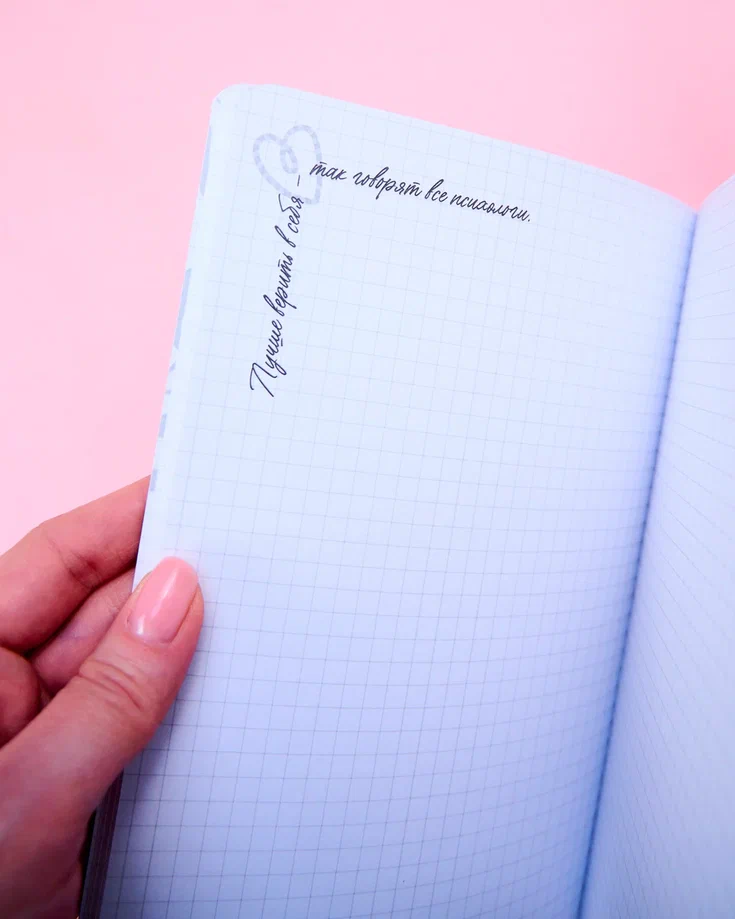 Лучше верить в себя –
так говорят все психологи.